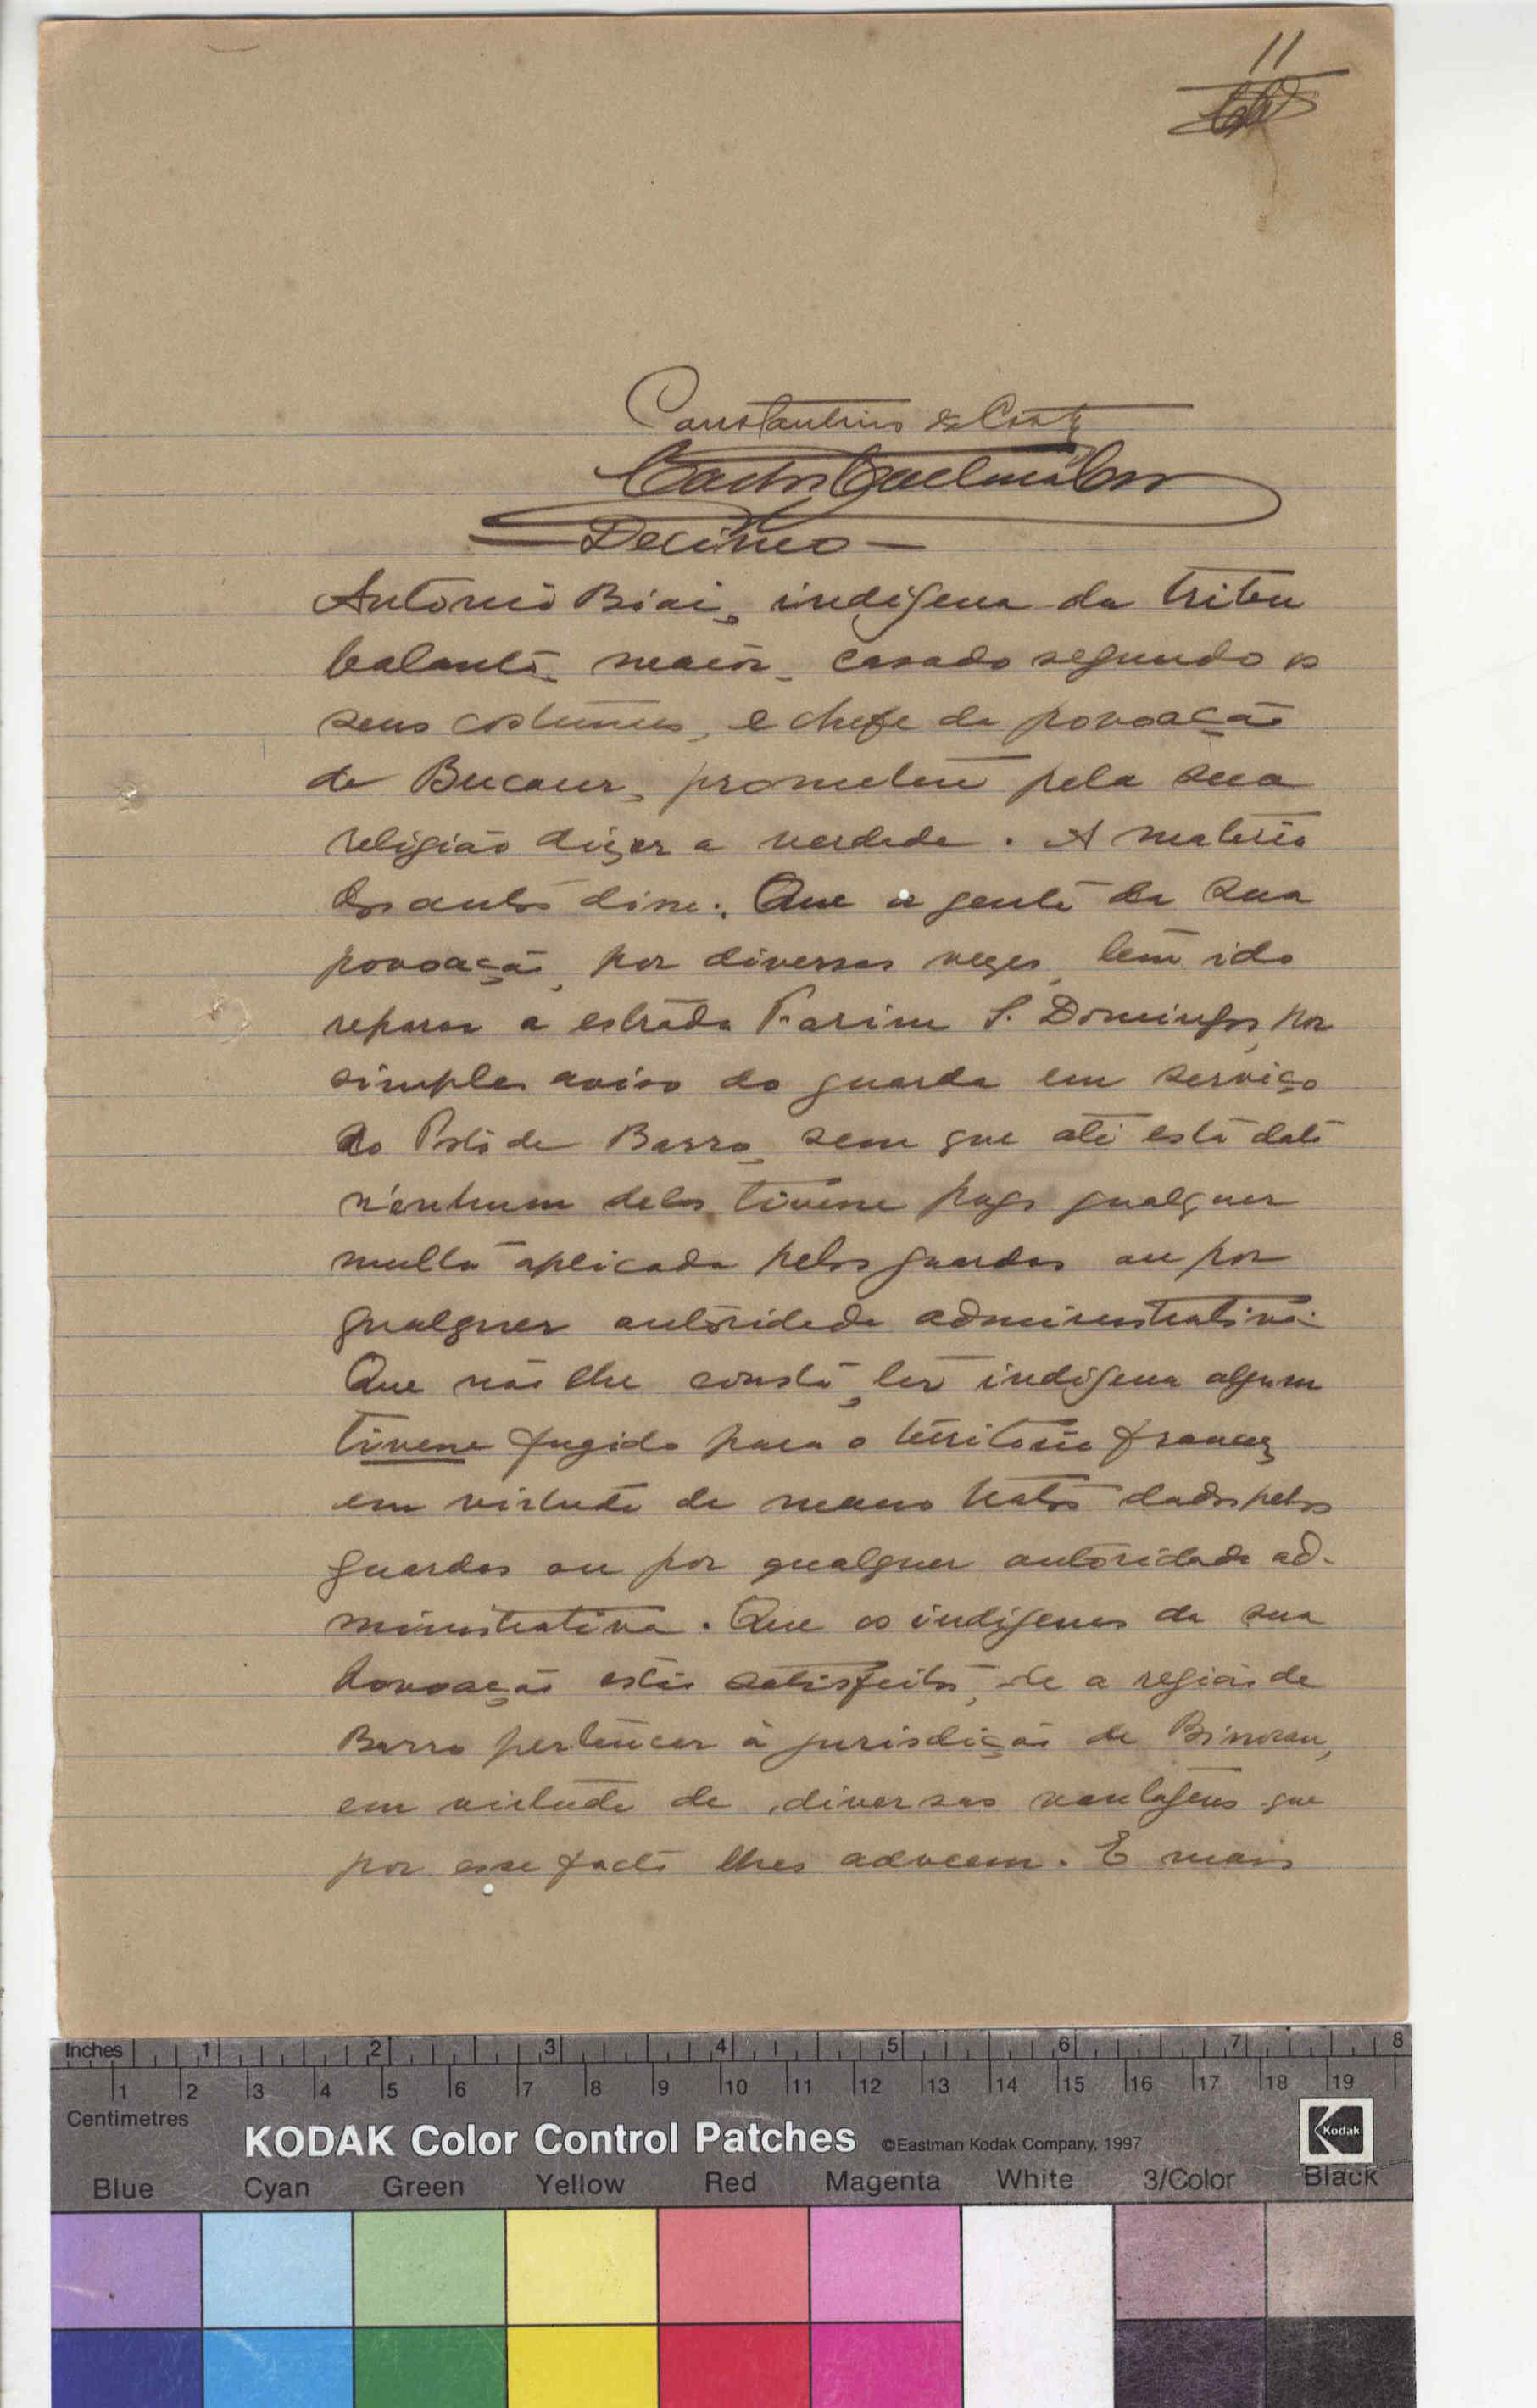 11
Constantino da Costa
Decimo
Antonio Biai, indigena da tribu
balanta, maior, casado segundo os
seus costumes, e chefe da povoação
de Bucaur, prometeu pela sua
religião dizer a verdade. A materia
dos autos disse: Que a gente da sua
povoação, por diversas vezes, tem ido
reparar a estrada Farim S. Domingos, por
simples aviso do guarda em serviço
no Posto de Barro, sem que até esta data
nenhum deles tivesse pago qualquer
multa aplicada pelos guardas ou por
qualquer autoridade administrativa.
Que não lhe consta, ter indigena algum
tivesse fugido para o territorio francez
em virtude de maus tratos dados pelos
guardas ou por qualquer autoridade ad-
ministrativa. Que os indigenas da sua
povoação estão satisfeitos, de a região de
Barro pertencer à jurisdição de Binorau,
em virtude de diversas vantagens que
por esse facto lhes adveem. E mais
Inches 1 2 3 4 5 6 7 8
1 2 3 4 5 6 7 8 9 10 11 12 13 14 15 16 17 18 19
Centimetres
KODAK Color Control Patches ©Eastman Kodak Company, 1997 Kodak
Blue Cyan Green Yellow Red Magenta White 3/Color Black